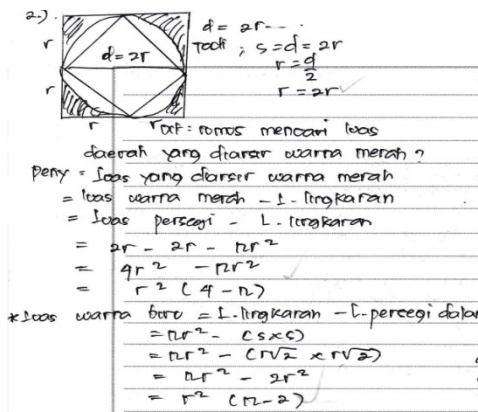 2.).
d = 2r...
r
d = 2r
Tadi ; s = d = 2r
r = d/2
r
r = 2r
r
: rumus mencari luas
daerah yang diarsir warna merah ?
peny = luas yang diarsir warna merah
= luas warna merah - L. lingkaran
= luas persegi - L. lingkaran
= 2r - 2r - πr²
= 4r² - πr²
= r² (4 - π)
*luas warna biru = L. lingkaran - L. persegi dalam
= πr² - (s x s)
= πr² - (r√2 x r√2)
= πr² - 2r²
= r² (π - 2)